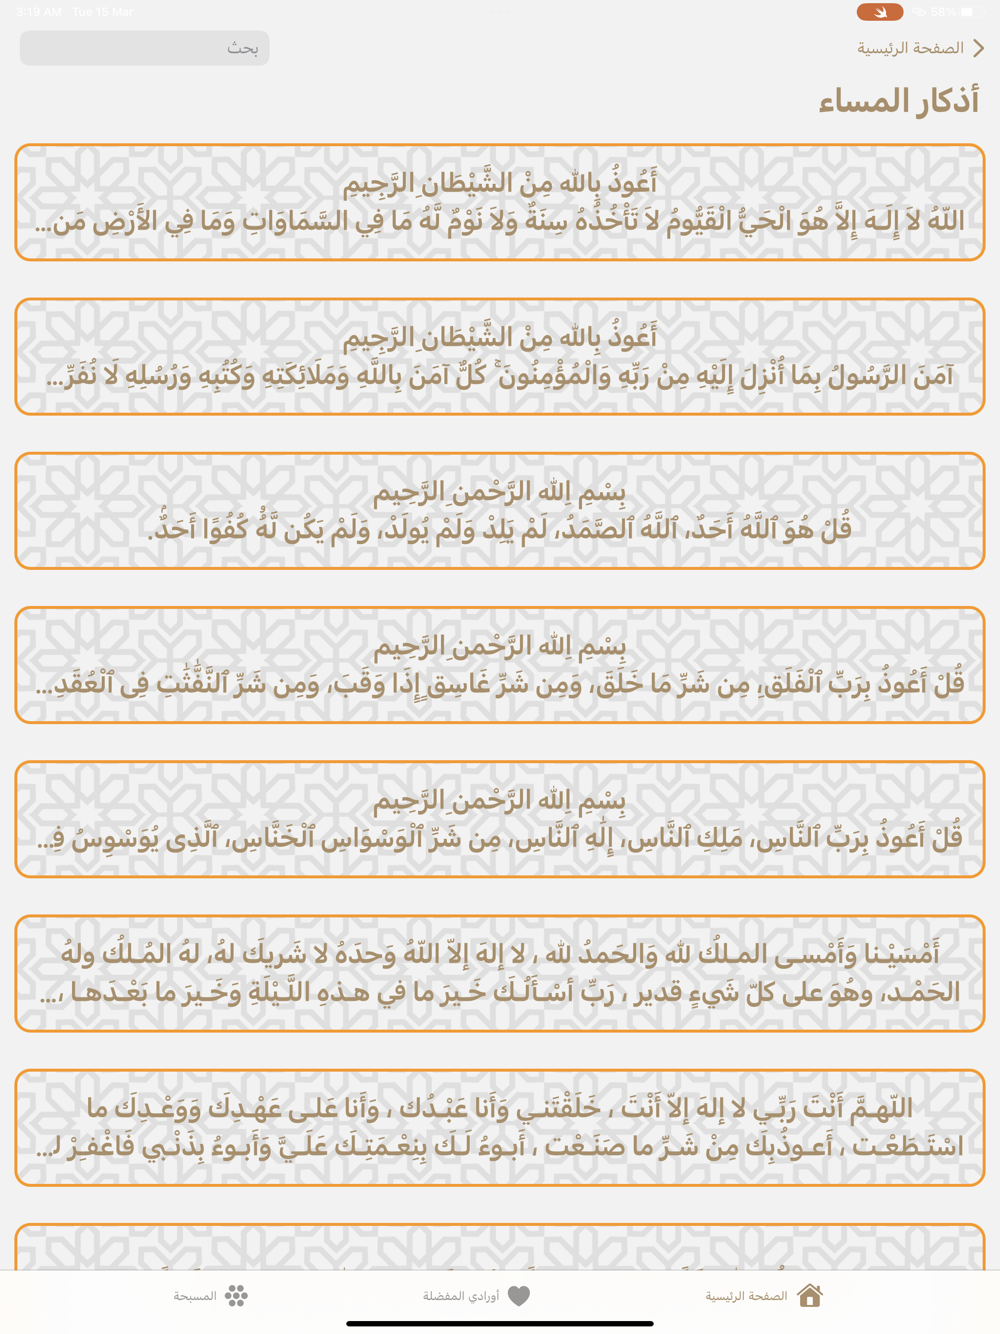 3:19 AM Tue 15 Mar
58%
الصفحة الرئيسية
بحث
أذكار المساء
أَعُوذُ بِاللهِ مِنْ الشَّيْطَانِ الرَّجِيمِ
اللّهُ لاَ إِلَـهَ إِلاَّ هُوَ الْحَيُّ الْقَيُّومُ لاَ تَأْخُذُهُ سِنَةٌ وَلاَ نَوْمٌ لَّهُ مَا فِي السَّمَاوَاتِ وَمَا فِي الأَرْضِ مَن...
أَعُوذُ بِاللهِ مِنْ الشَّيْطَانِ الرَّجِيمِ
آمَنَ الرَّسُولُ بِمَا أُنْزِلَ إِلَيْهِ مِنْ رَبِّهِ وَالْمُؤْمِنُونَ ۚ كُلٌّ آمَنَ بِاللَّهِ وَمَلَائِكَتِهِ وَكُتُبِهِ وَرُسُلِهِ لَا نُفَرِّ...
بِسْمِ اللهِ الرَّحْمنِ الرَّحِيم
قُلْ هُوَ ٱللَّهُ أَحَدٌ، ٱللَّهُ ٱلصَّمَدُ، لَمْ يَلِدْ وَلَمْ يُولَدْ، وَلَمْ يَكُن لَّهُۥ كُفُوًا أَحَدٌۢ.
بِسْمِ اللهِ الرَّحْمنِ الرَّحِيم
قُلْ أَعُوذُ بِرَبِّ ٱلْفَلَقِ، مِن شَرِّ مَا خَلَقَ، وَمِن شَرِّ غَاسِقٍ إِذَا وَقَبَ، وَمِن شَرِّ ٱلنَّفَّٰثَٰتِ فِى ٱلْعُقَدِ...
بِسْمِ اللهِ الرَّحْمنِ الرَّحِيم
قُلْ أَعُوذُ بِرَبِّ ٱلنَّاسِ، مَلِكِ ٱلنَّاسِ، إِلَٰهِ ٱلنَّاسِ، مِن شَرِّ ٱلْوَسْوَاسِ ٱلْخَنَّاسِ، ٱلَّذِى يُوَسْوِسُ فِ...
أَمْسَيْـنا وَأَمْسـى المـلكُ لله وَالحَمدُ لله ، لا إلهَ إلاّ اللّهُ وَحدَهُ لا شَريكَ لهُ، لهُ المُـلكُ ولهُ
الحَمْـد، وهُوَ على كلّ شَيءٍ قدير ، رَبِّ أسْـأَلُـكَ خَـيرَ ما في هـذهِ اللَّـيْلَةِ وَخَـيرَ ما بَعْـدَهـا ،...
اللّهـمَّ أَنْتَ رَبِّـي لا إلهَ إلاّ أَنْتَ ، خَلَقْتَنـي وَأَنا عَبْـدُك ، وَأَنا عَلـى عَهْـدِكَ وَوَعْـدِكَ ما
اسْتَـطَعْـت ، أَعـوذُبِكَ مِنْ شَـرِّ ما صَنَـعْت ، أَبـوءُ لَـكَ بِنِعْـمَتِـكَ عَلَـيَّ وَأَبـوءُ بِذَنْـبي فَاغْفـِرْ لـ...
الصفحة الرئيسية
أورادي المفضلة
المسبحة